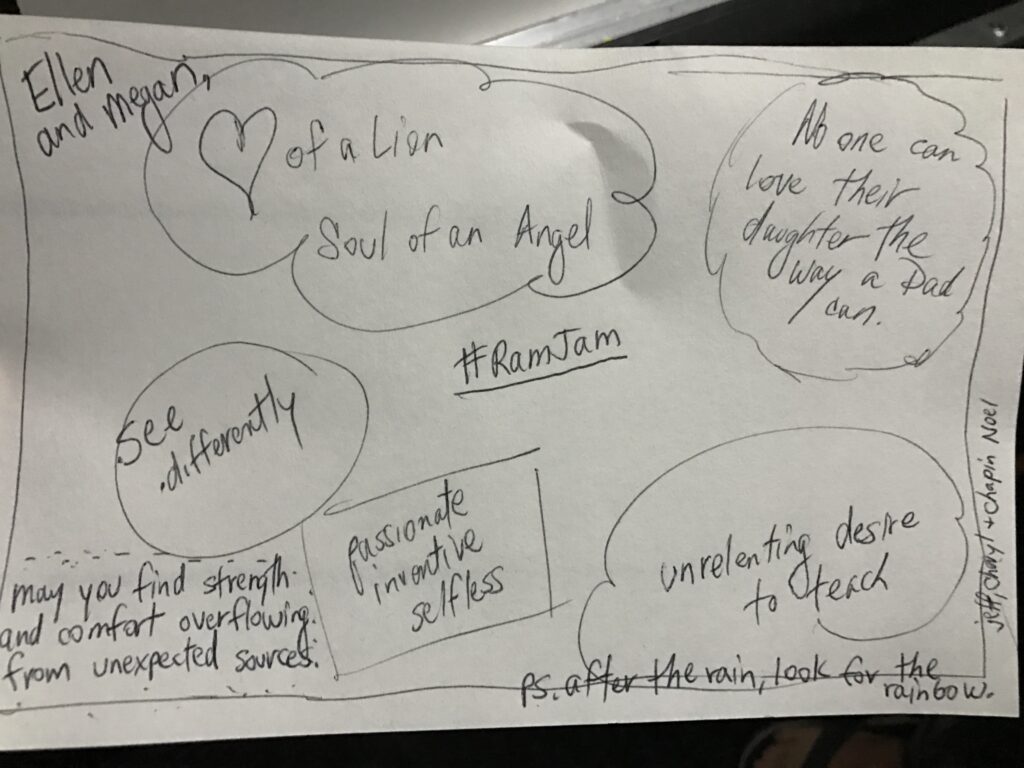 Ellen
and Megan,
of a Lion
Soul of an Angel
No one can
love their
daughter the
way a Dad
can.
#RamJam
See
differently
passionate
inventive
selfless
unrelenting desire
to teach
may you find strength
and comfort overflowing
from unexpected sources.
jeff, cheryl + chapin Noel
ps. after the rain, look for the
rainbow.